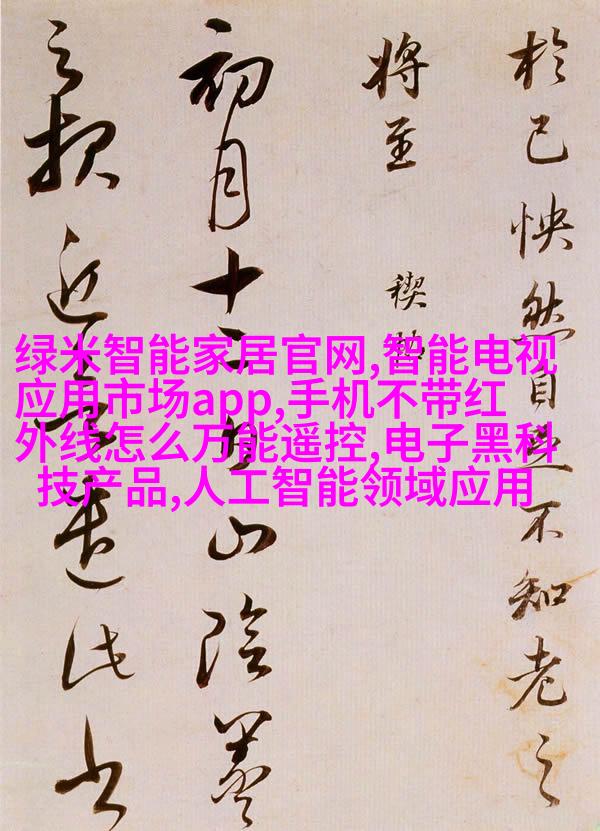 於己怏然自足不知老之
將至 禊帖
初月十二日山陰羲
之報近遣此書
绿米智能家居官网,智能电视
应用市场app,手机不带红
外线怎么万能遥控,电子黑科
技产品,人工智能领域应用